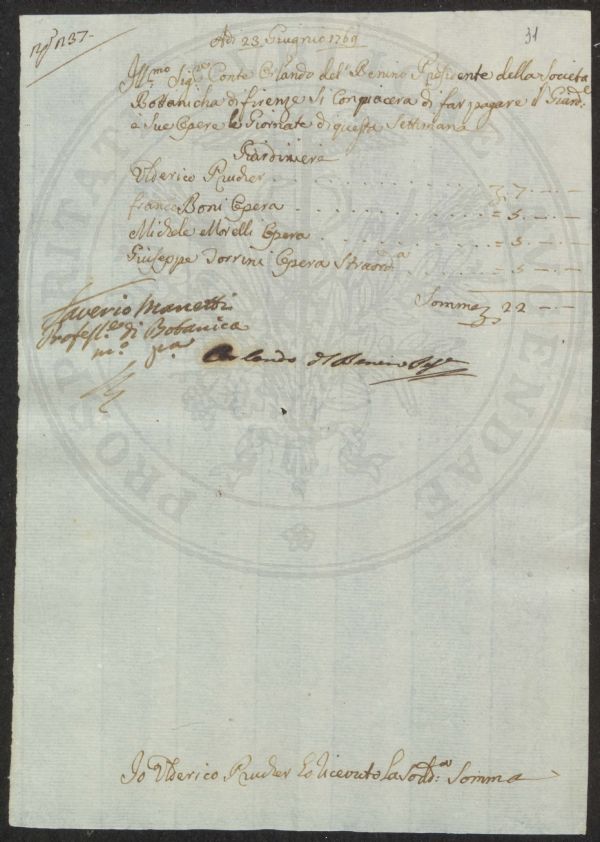 31
Adì 23 Giugnio 1769
Ill.mo Sig.re Conte Orlando del Benino Presidente della Societa
Bottanicha di firenze Si Compiacera di far pagare il Giard.e
e Sue Opere le Giornate di questa Settimana
Giardiniere
Ulderico Prucher . . . . . . . . 7 . — . —
franco Boni Opera . . . . . . . . = 5 . — . —
Michele Morelli Opera . . . . . . . = 5 . — . —
Giuseppe Torrini Opera Straord.a . . . . = 5 . — . —
Somma 22 — . —
Saverio Manetti
Profess.e di Botanica
m.o p.a
Orlando Del Benino Pres.e
Io Ulderico Prucher ho ricevuto la Sodd.a Somma
PROSPERITATI PUBLICAE AUGENDAE